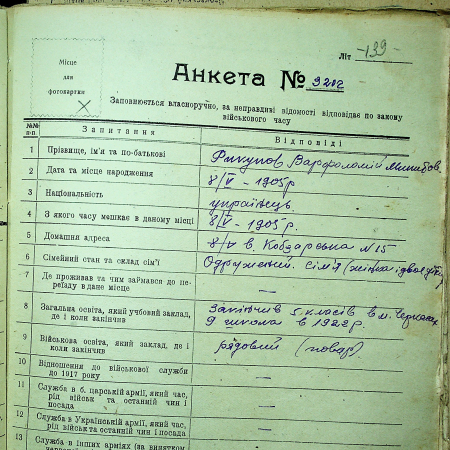 Літ -139-
Місце
для
фотокартки
Анкета № 9202
Заповнюється власноручно, за неправдиві відомості відповідає по закону
військового часу
№№
п-п.
Запитання
Відповіді
1 Прізвище, ім'я та по-батькові
Варфоломій
2 Дата та місце народження
8/V - 1905р
3 Національність
українець
4 З якого часу мешкає в даному місці
8/V - 1905р.
5 Домашня адреса
в. Кобзарська №15
6 Сімейний стан та склад сім'ї
Одружений. сім'я (жінка і двоє дітей)
7 Де проживав та чим займався до пе-
реїзду в дане місце
—
8 Загальна освіта, який учбовий заклад,
де і коли закінчив
Закінчив 5 класів в м. Черкасах
9 школа в 1922р
9 Військова освіта, який заклад, де і
коли закінчив
рядовий (повар)
10 Відношення до військової служби
до 1917 року
—
11 Служба в б. царській армії, який час,
рід військ та останній чин і
посада
—
12 Служба в Українській армії, який час,
рід військ та останній чин і посада
—
13 Служба в інших арміях (за винятком